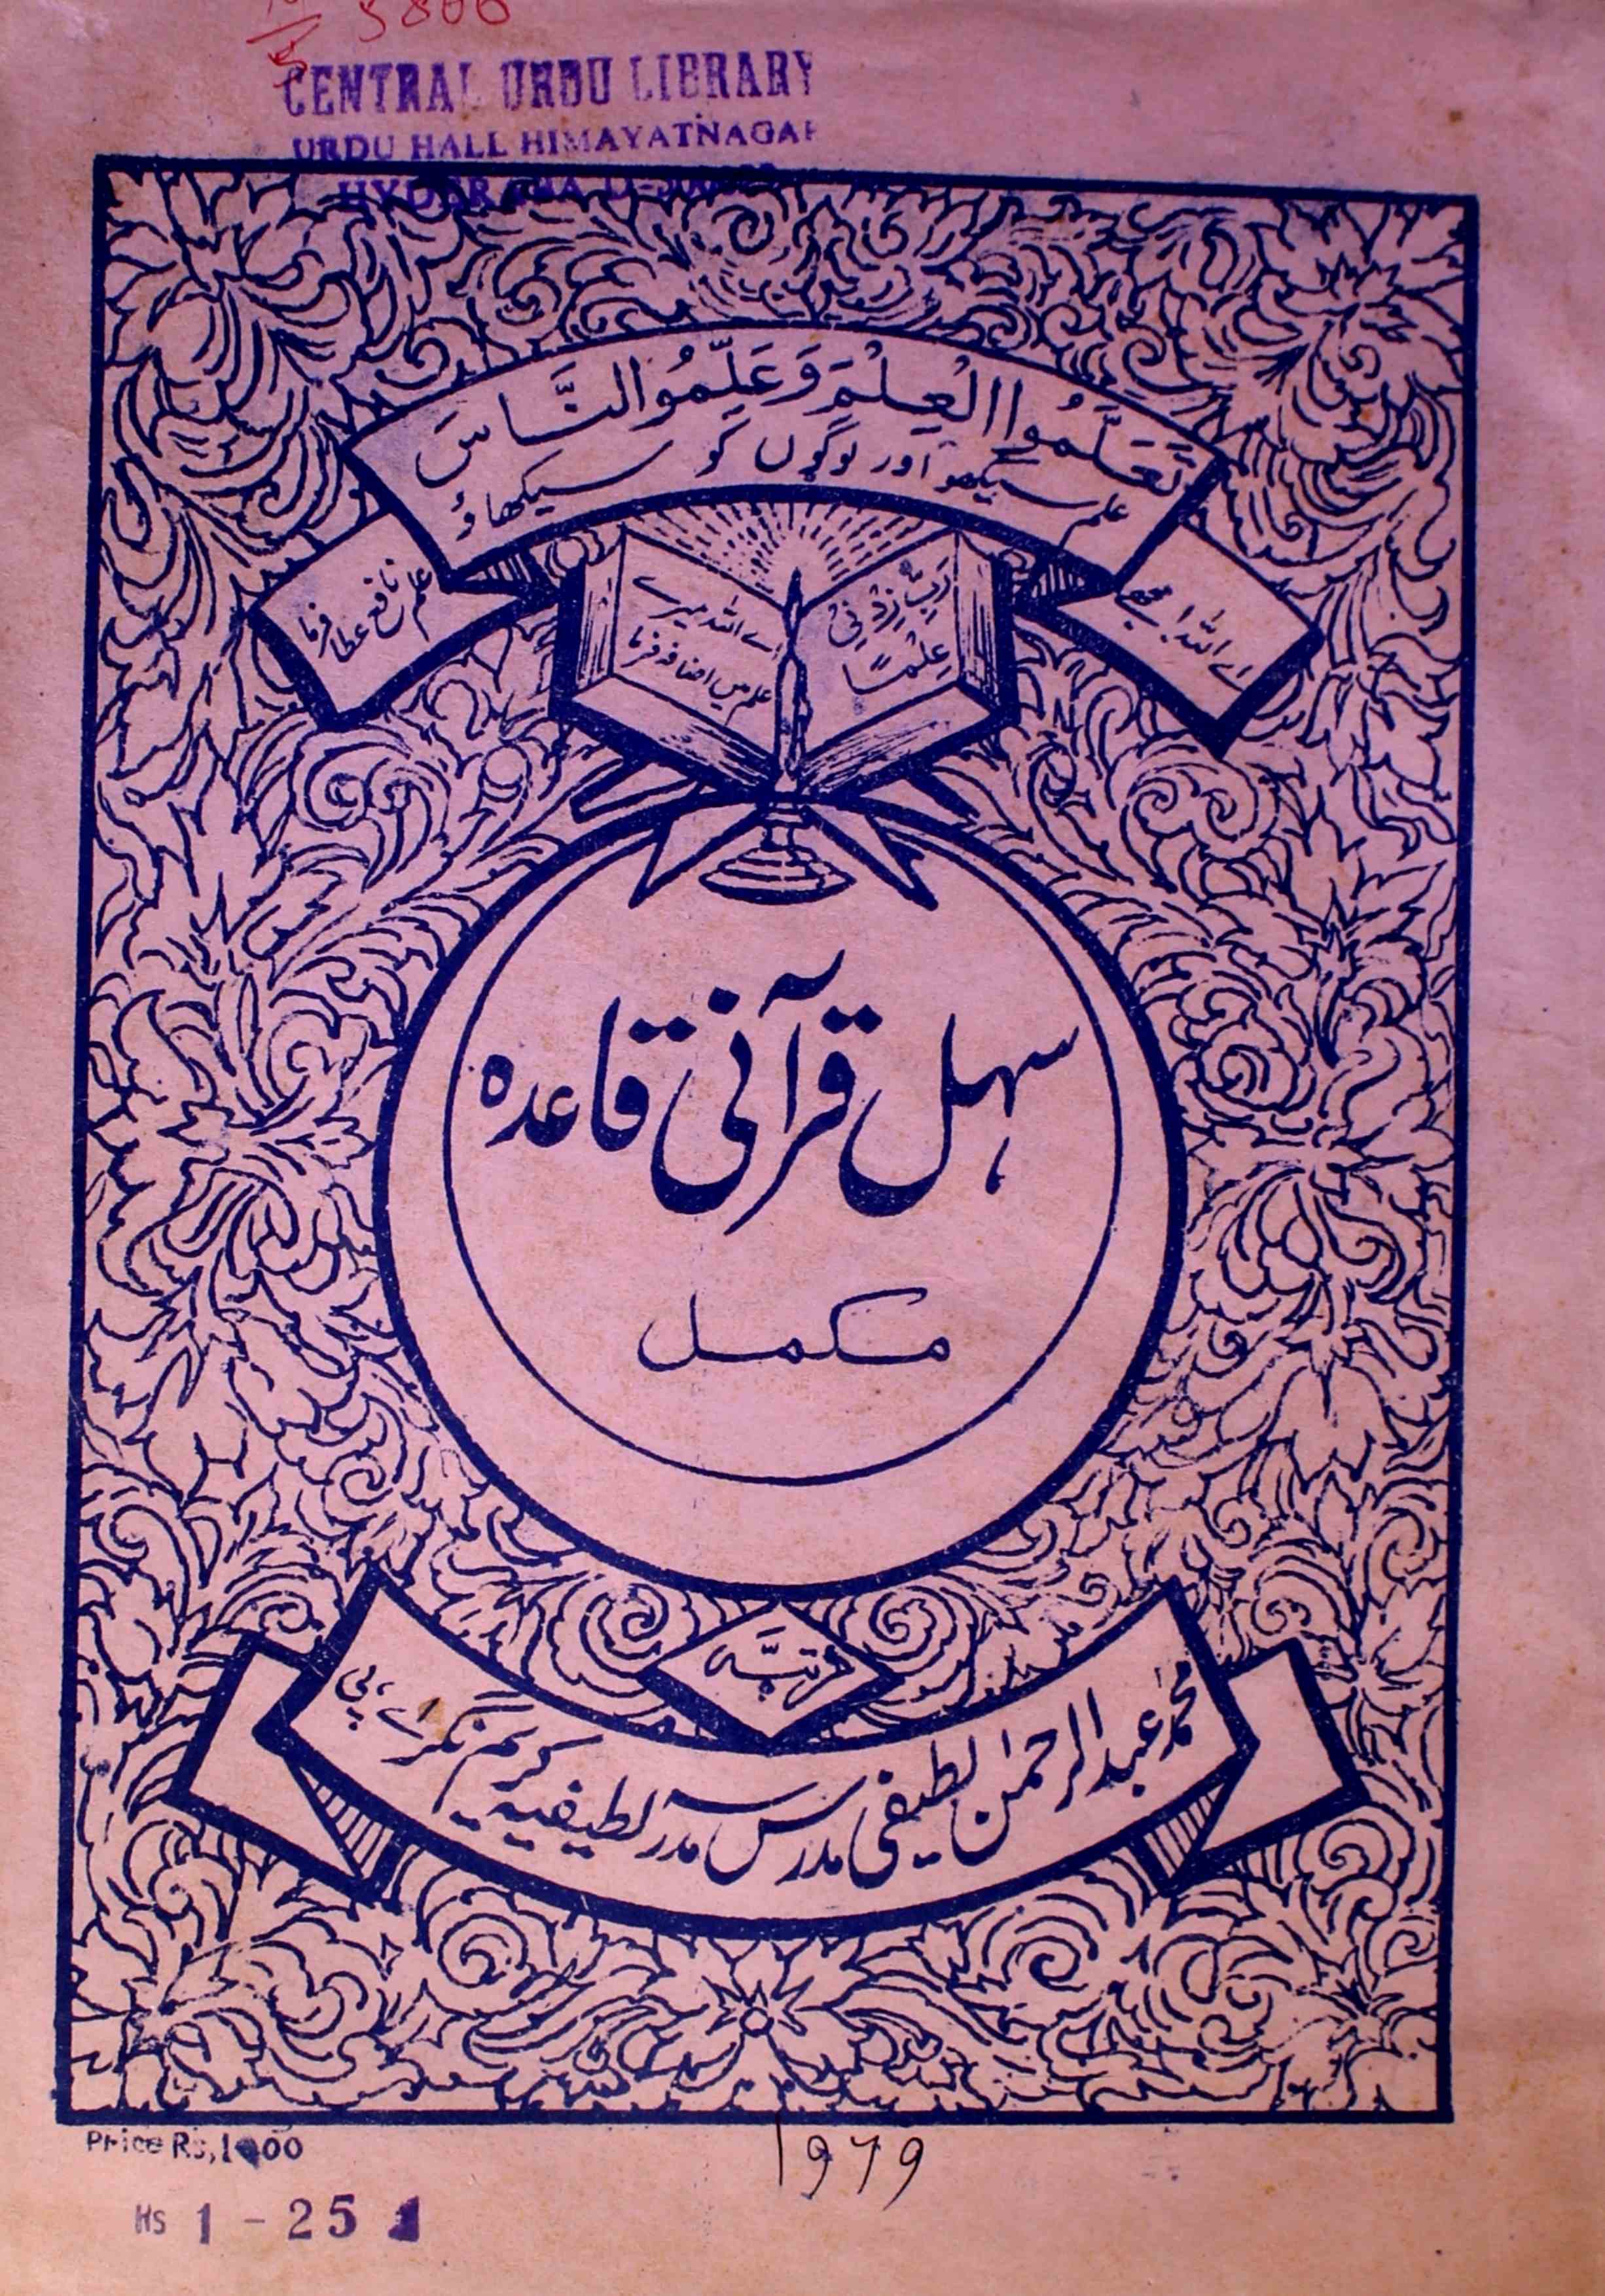 5806
CENTRAL URDU LIBRARY
URDU HALL HIMAYATNAGAR
تَعَلَّمُوا الْعِلْمَ وَعَلِّمُوا النَّاسَ
علم سیکھو اور لوگوں کو سیکھاؤ
اے اللہ! مجھے
علم نافع عطا فرما
رَبِّ زِدْنِیْ
عِلْمًا
اے اللہ میرے
علم میں اضافہ فرما
سہل قرآنی قاعدہ
مکمل
مرتبہ
محمد عبدالرحمٰن لطیفی مدرس مدرسہ لطیفیہ کریم نگر اے، پی
Price Rs, 1.00
1979
Rs 1 - 25